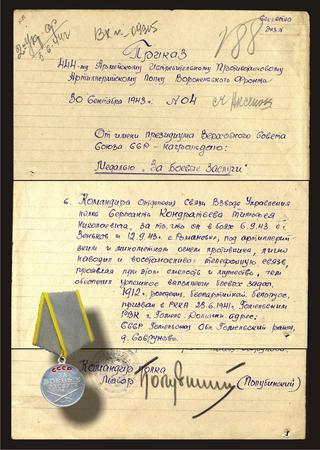 Секретно
экз. №
188
Вх №
Приказ
444-му Армейскому Истребительному Противотанковому
Артиллерийскому Полку Воронежского Фронта
30 Сентября 1943 г. № 04
От имени президиума Верховного Совета
Союза ССР - награждаю:
Медалью „За Боевые Заслуги"
6. Командира Отделения Связи Взвода Управления
полка Сержанта Кондратьева Тимофея
Николаевича, за то, что он в боях 6.9.43 г.
Зеньков и 12.9.43 г. Романовка, под артиллерий-
ским и минометным огнем противника, лично
наводил и восстанавливал телефонную связь,
проявляя при этом смелость и мужество, тем
обеспечил успешное выполнение боевых задач.
1912 г. рождения, беспартийный, белорус,
призван в РККА 23.6.41 г. Гомельским
РВК г. Гомель. Домашн. адрес:
БССР Гомельская Обл Гомельский район,
д.
Командир Полка
Майор (Полубинский)
СССР
ЗА
БОЕВЫЕ
ЗАСЛУГИ